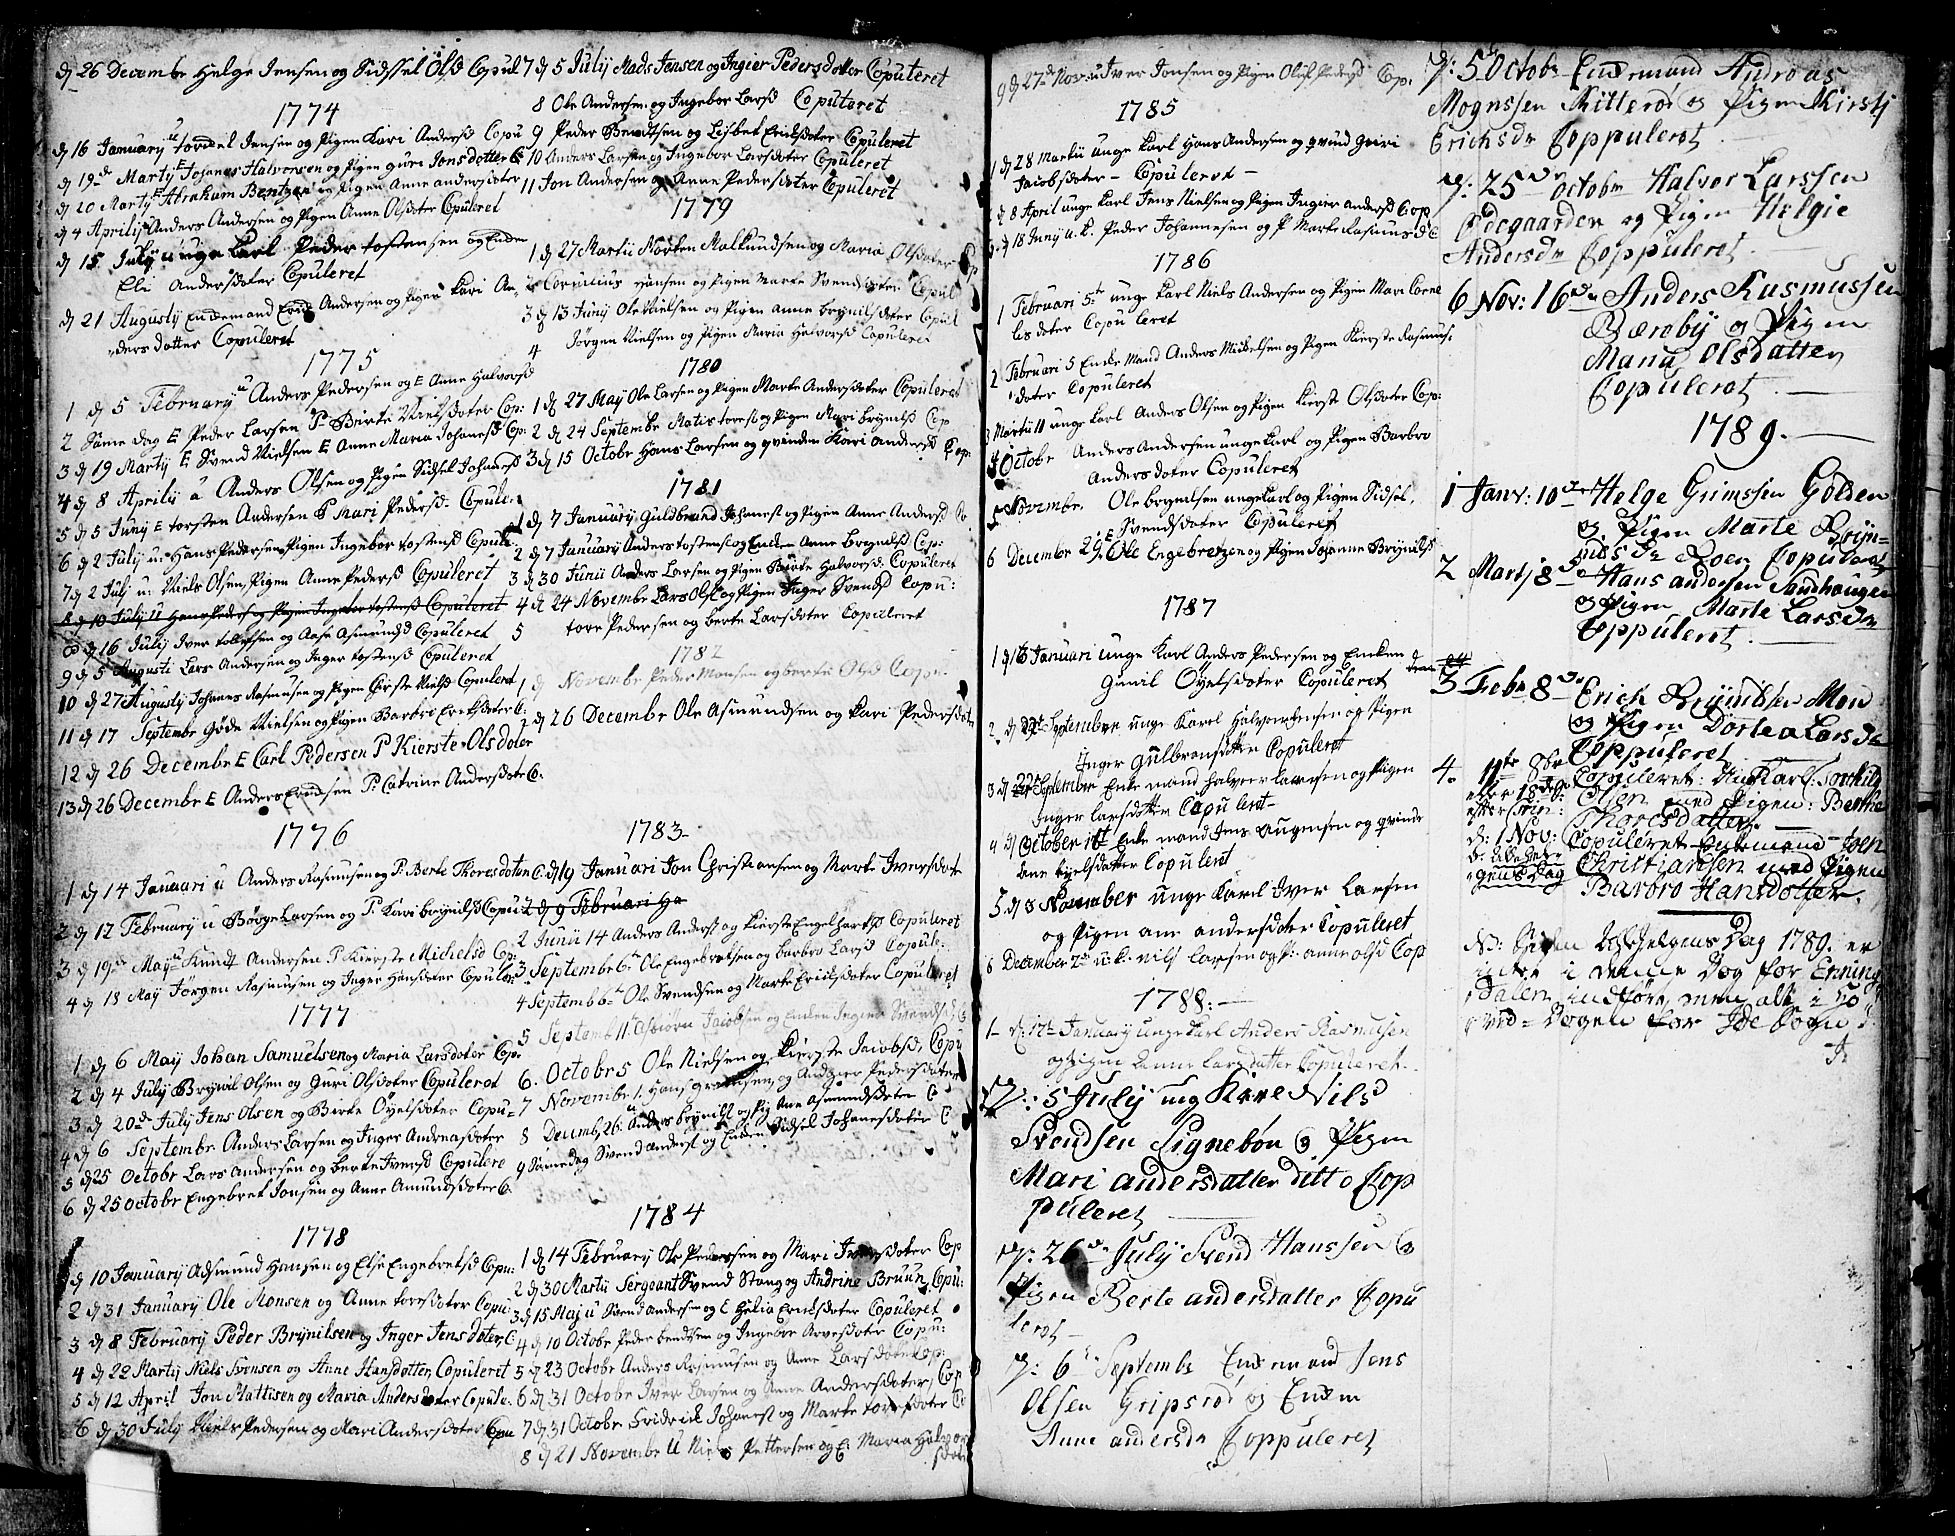 dj 26 Decembr Helge Jensen og Sidssel Olsd Copul
1774
dj 16 January u tordel Jensen og Pigen Kari Andersd Copu
dj 19de Martij E Johanes Halvorsen og Pigen guri Jonsdotter C
dj 20 Martij E Abraham Bentzen og Pigen Anne andersdoter
dj 4 Aprilij Anders Andersen og Pigen Anne Olsdoter Copuleret
dj 15 July u unge Karl Peder tostensen og Enden
Eli Andersdoter Copuleret
dj 21 Augusty Enckemand Andersen og Pigen Kari An-
dersdotter Copuleret
1775
1 dj 5 February u Anders Pedersen og E Anne Halvorsd
2 Same dag E Peder Larsen P Birte Nielsdoter Cop:
3 dj 19 Martij E Svend Nielsen E Anne Maria Johanesd Cop:
4 dj 8 Aprilij u Anders Olsen og Pigen Sidsel Johanesd
5 dj 5 Junij E torsten Andersen P Mari Pedersd. Copule:
6 dj 2 July u: Hans Pedersen Pigen Ingebor tostensd Copul:
7 dj 2 July u: Niels Olsen, Pigen Anne Pedersd Copuleret
8 dj 10 July u Hans Peders og Pigen Ingebor tostensd Copuleret
8 dj 16 July Iver tollefsen og Aase Asmundsd Copuleret
9 dj 5 Augusti Lars Andersen og Inger tostensd Copuleret
10 dj 27 Augusty Johanes Rasmusen og Pigen Chirste Nielsd Copuleret
11 dj 17 Septembr Gøde Nielsen og Pigen Barbro Eriksdoter C.
12 dj 26 Decembr E Carl Pedersen P Kierste Olsdoter
13 dj 26 Decembr E Anders Evensen P. Catrine Andersdoter Co.
1776
1 dj 14 Januari u Anders Rasmusen og P. Berte Thoresdoter C.
2 dj 12 February u Børge Larsen og P. Kari brynilsd Copu
3 dj 19de May u Knudt Andersen P Kierste Michelsd Cop.
4 dj 18 May Jørgen Rasmusen og Inger Hansdoter Copuler:
1777
1 dj 6 May Johan Samuelsen og Maria Larsdoter Cop.
2 dj 4 July Brynil Olsen og Guri Olsdoter Copuleret
3 dj 20de July Jens Olsen og Birte Øyelsdoter Copu=
4 dj 6 Septembr Anders Larsen og Inger Andreasdoter
5 dj 25 Octobr Lars Andersen og berte Iversd Copulere
6 dj 25 October Engebret Jonsen og Anne Amundsdoter C.
1778
dj 10 January Adsmund Hansen og Else Engebretsd Copu:
2 dj 31 January Ole Monsen og Anne toresdoter Copu:
3 dj 8 February Peder Brynilsen og Inger Jensdoter, C
4 dj 22 Martij Niels Svensen og Anne Hansdotter, Copuleret
5 dj 12 April Jon Mattisen og Maria Andersdoter Copule.
6 dj 30 July Niels Pedersen og Mari Andersdoter Copu
7 dj 5 July Mads Jensen og Ingier Pedersdotter Copuleret
8 Ole Andersen og Ingebor Larsd Copuleret
9 Peder Bendtsen og Lisbet Eriksdoter Copuleret
10 Anders Larsen og Ingebor Larsdoter Copuleret
11 Jon Andersen og Anne Pedersdoter Copuleret
1779
1 dj 27 Martii Morten Malkundsen og Maria Olsdoter Cop
2 Cornilius Hansen og Pigen Marte Svendsdoter Copul
3 dj 13 Juny Ole Nielsen og Pigen anne brynilsdoter Copul
4 Jørgen Nielsen og Pigen Maria Halvorsd Copuleret
1780
1 dj 27 May Ole Larsen og Pigen Marte Andersdoter Copuleret
2 dj 24 Septembr Matis toresl og Pigen Mari brynilsd Cop
3 dj 15 Octobr Hans Larsen og qvinden Kari andersd Cop.
1781
1 dj 7 January Guldbrand Johanesl og Pigen Anne Andersd Co.
2 dj 7 January Anders tostensl og Enden Anne brynilsd Cop:
3 dj 30 Junii Anders Larsen og Pigen Birte Halvorsd. Copuleret
4 dj 24 Novembr Lars Olsl og Pigen Inger Svendsd Copu:
5 tore Pedersen og berte Larsdoter Copuleret
1782
1 dj Novembr Peder Monsen og berte Olsd Copu.
2 dj 26 Decembr Ole Asmundsen og Kari Pedersdoter
1783
dj 19 Januari Jon Christiansen og Marte Iversdoter
2 dj 9 Februari Ha
2 Junii 14 Anders Andersl og Kierste Engelhartsd Copuleret
3. Septembr 6te Ole Engebretsen og barbro Larsd Copule:
4 Septemb 6te Ole Svendsen og Marte Eriksdoter Copuleret
5 Septemb 11te Asbiørn Jacobsen og Enken Inger Svendsd C
6. Octobr 5 Ole Nielsen og Kierste Jacobsd, Copu
7 Novembr 1. Hans grimsen, og Andrær Pedersdoter
8 Decemb, 26. u Anders brynilsl og Pig Ane Asmundsdoter C
9 Samedag Svend andersl og Enken Sidsel Johanesdoter C
1784
1 dj 14 February Ole Pedersen og Mari Iversdoter Cop
2 dj 30 Martii Sergeant Svend Stang og Andrine Bruun, Copu:
3 dj 15 Maj u Svend andersen og E Helia Eriksdoter Copuleret
4 dj 10 Octobr Peder bendtsen og Ingebor Arvesdoter Copu:
5 dj 23 Octobr Anders Rasmusen og Anne Larsdoter Cop:
6 dj 31 Octobr Iver Larsen og Anne Andersdoter, Cop
7 dj 31 Octobr Fridrick Johanesl og Marte toresdoter Co
8 dj 21 Novembr U Niels Pettersen og E. Maria Halvor
sdoter
9 dj 27de Nov u Iver Jonsen og Pigen Oluf Pedersd Cop.
1785
1 dj 28 Martii unge Karl Hans Andersen og qvind Guri
Jacobsdoter - Copuleret -
dj 8 April unge Karl Jens Nielsen og Pigen Ingier andersd Cop
3. dj 18 Juny u. k. Peder Johannesen og P Marte Rasmusd C
1786
1 Februari 5te unge Karl Niels Andersen og Pigen Mari Corne
lisdoter Copuleret
2 Februari 5 Enke Mand Anders Mickelsen og Pigen Kierste Rasmus,
doter Copuleret
3 Martii 11 unge Karl Anders Olsen og Pigen Kierste Olsdoter Cop:
4 Octobr Anders Andersen unge Karl og Pigen Barbro
Andersdoter Copuleret
5 Novembr. Ole brynilsen unge Karl og Pigen Sidsel,
Svendsdoter Copuleret
6 Decembr 29. E Ole Engebretzen og Pigen Johanne Brynilsd
1787
1 dj 16 Januari unge Karl Anders Pedersen og Encken
Gunil Øyelsdoter Copuleret
2. dj 22de Septembre unge Karel Halvor Jensen og Pigen
Inger Gulbransdatter Copuleret
3 dj 22de Septembre Enke mand halvoer larsen og Pigen
Inger larsdatter Copuleret-
4 dj October 1te Enke mand Jens Augensen og qvinde
lene eyelsdatter Copuleret
5 dj 3 November unge Karl Iver Larsen
og Pigen ane andersdoter Copuleret
6 December 2de u:k: nils larsen og P: anne olsd Cop
1788. -
1- dj: 17te January unge Karl Anders Rasmusen
og Pigen Lenne larsdatter Copuleret.
D: 5 July ung Karl Nils
Svendsen Signebøn og Pigen
Mari andersdatter ditto Cop
puleret
D: 26de July Svend Hanssen og
Pigen Berte andersdatter Copu
leret -
D: 6te Septembr Enckemand Jens
Olsen Gripsrød og Encken
Anne andersdr Coppuleret
D: 5te Octobr Enckemand Andreas
Mognssen Kitterød og Pigen Kirsty
Erichsdr Coppuleret
D: 25de octobr Halvor Larssen
Ødegaarden og Pigen Helgie
Andersdr Coppuleret
6 Nov: 16de Anders Rasmussen
Bæreby og Pigen
Maria Olsdatter
Copuleret
1789. -
1 Janv: 10de Helge Grimssen Golden
og Pigen Marte Bryn=
nilsdr Roen Copuleret
2 Martj 8de Hans andersen Sandhaugen
og Pigen Marte Larsdr
Coppuleret
3 Febr 8de Erich Brynildsen Moen
og Pigen Dortea Larsdr
Coppuleret
4. 11te 8br Copuleret: Ung Karl: Torkild
eller 18de p: Olsen med Pigen: Berthe
efter Trin: Thoresdatter.
d: 1 Nov: Copuleret Enkemand Joen
Christiansen med Pigen
gens Dag Barbro Hansdotter.
NB: Siden Alle Helgens Dag 1789. er
intet i denne Bog for Enning
dalen indført, men alt i Ho
ved-Bogen for Idde Sogn